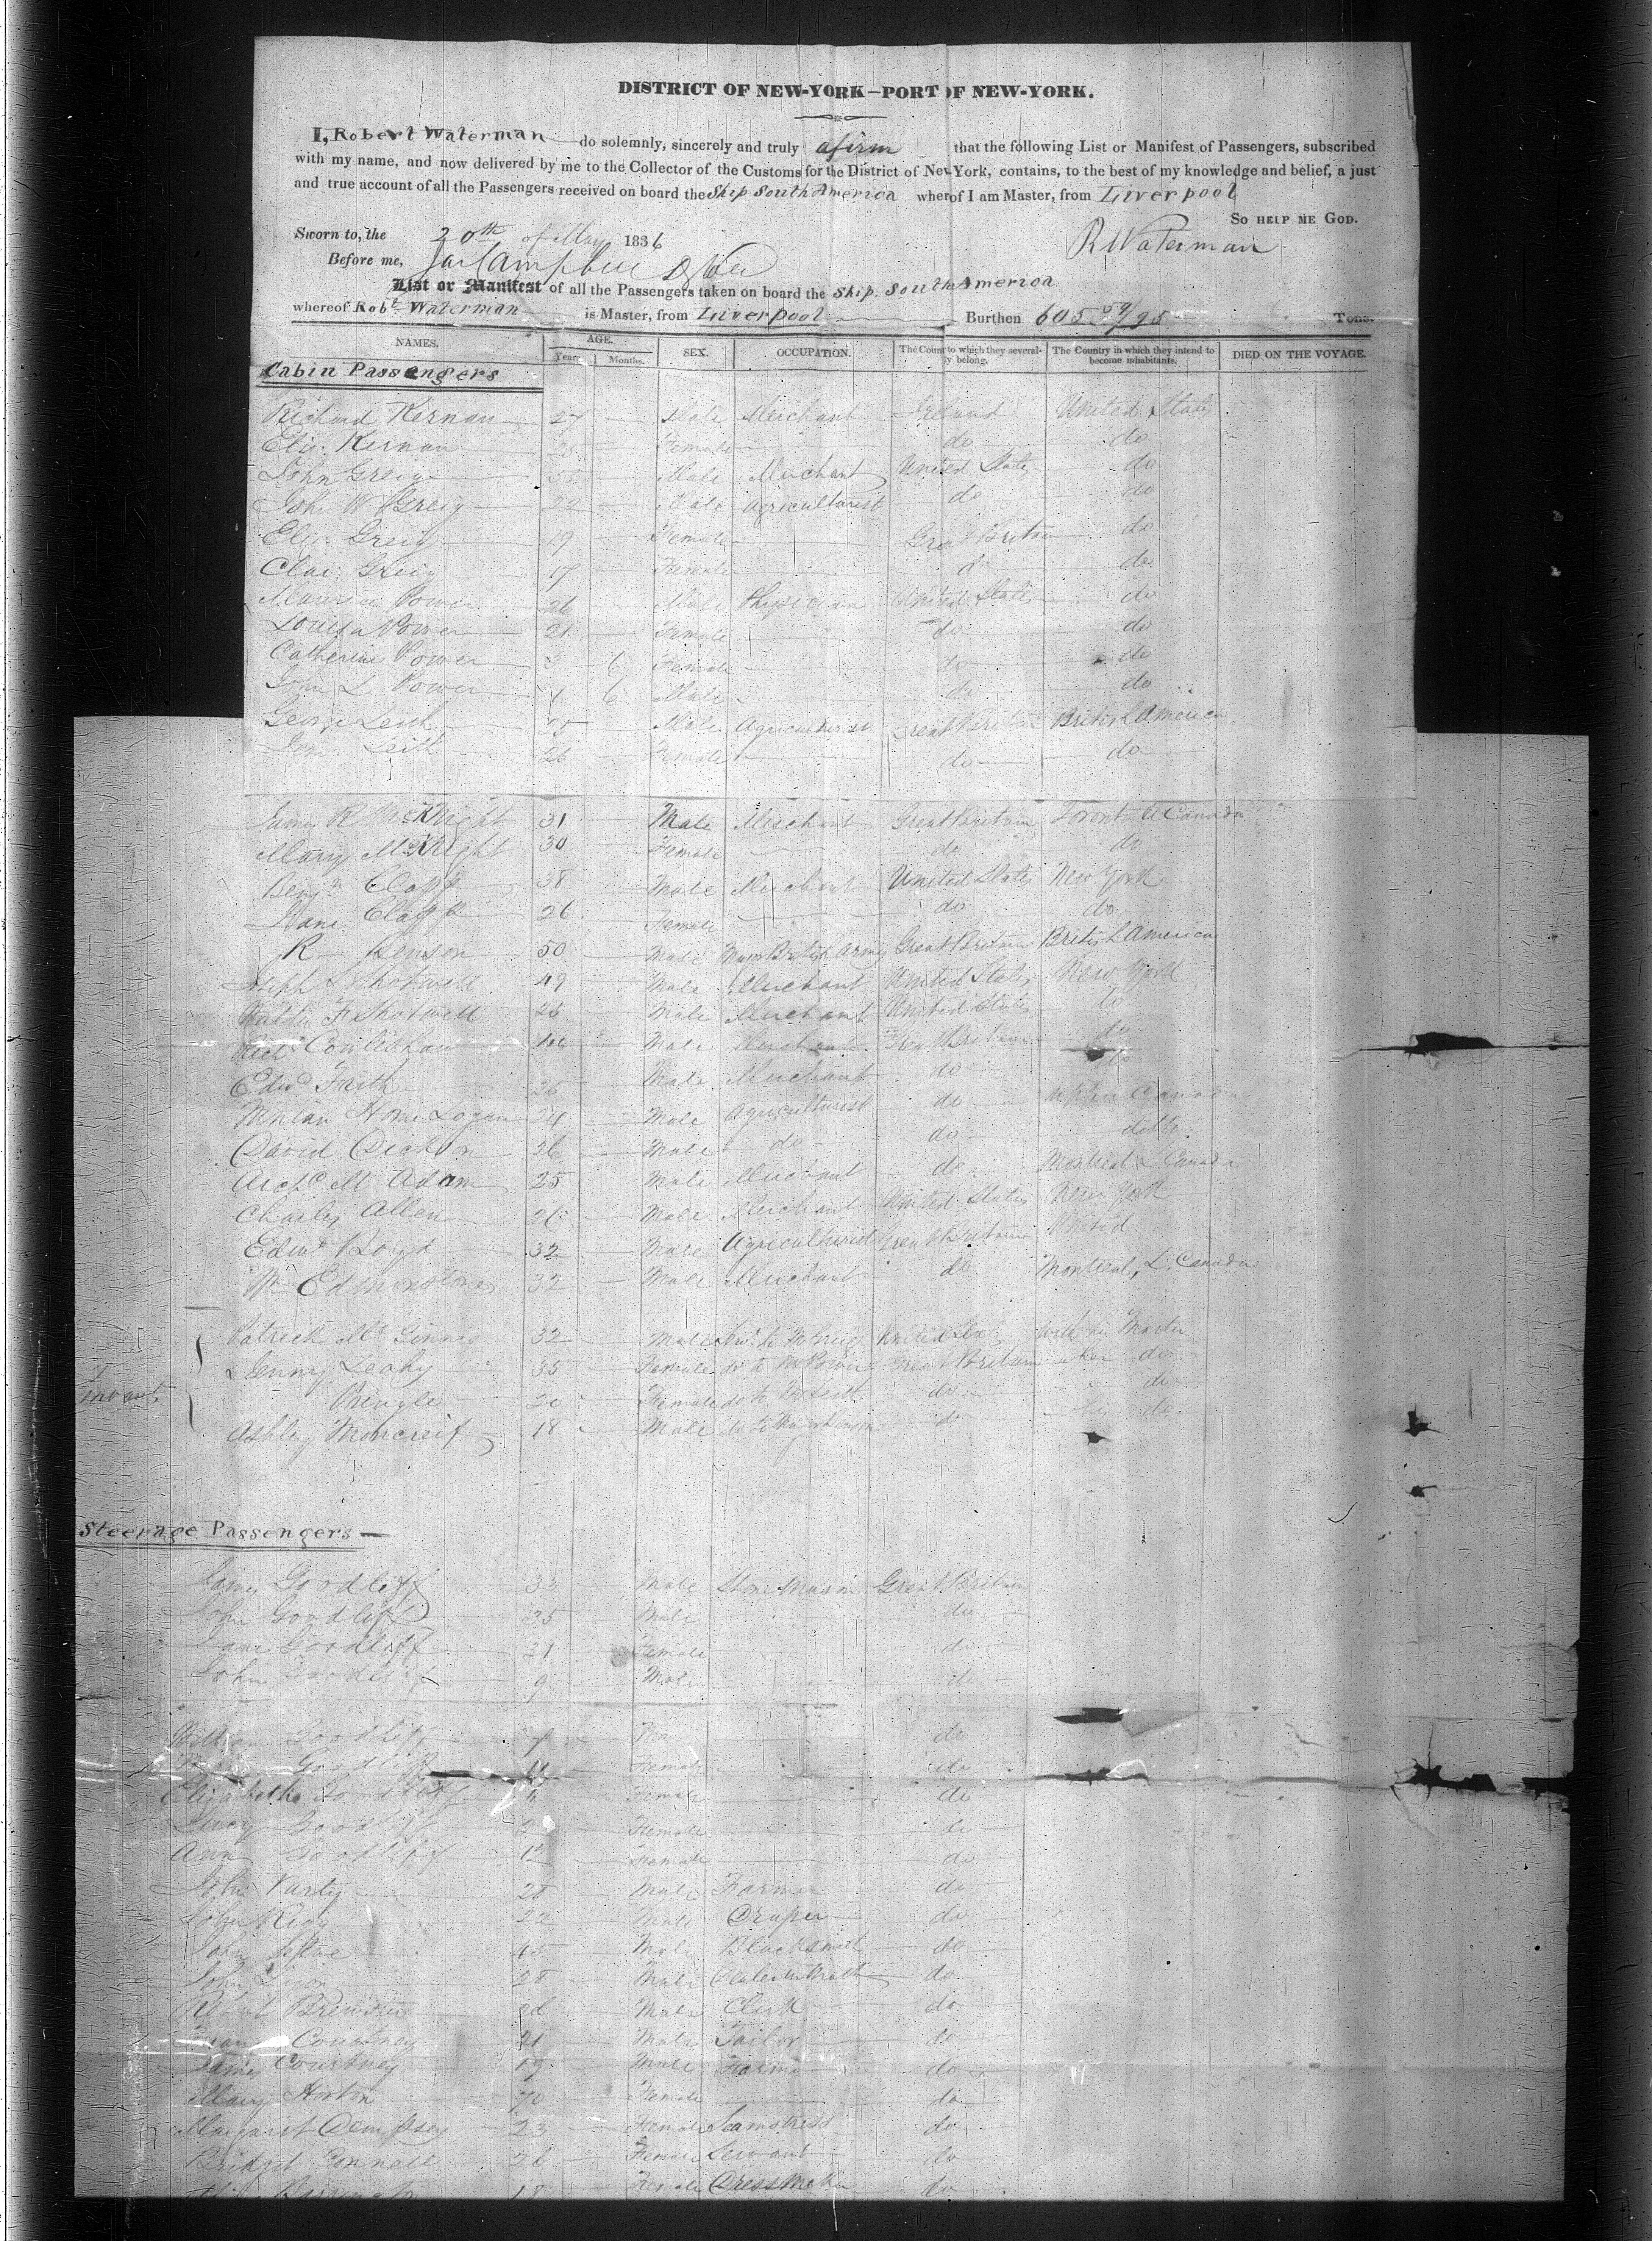 DISTRICT OF NEW-YORK—PORT OF NEW-YORK.
I, Robert Waterman do solemnly, sincerely and truly afirm that the following List or Manifest of Passengers, subscribed
with my name, and now delivered by me to the Collector of the Customs for the District of New-York, contains, to the best of my knowledge and belief, a just
and true account of all the Passengers received on board the Ship South America wherof I am Master, from Liverpool
So HELP ME GOD.
Sworn to, the 20th of May 1836 R Waterman
Before me, Campbell
List or Manifest of all the Passengers taken on board the Ship South America
whereof Robt Waterman is Master, from Liverpool Burthen 605 59/95 Tons.
NAMES. AGE. SEX. OCCUPATION. The Country to which they severally belong. The Country in which they intend to become inhabitants. DIED ON THE VOYAGE.
Years Months.
Cabin Passengers
Richard Kernan 27 Male Merchant Ireland United States
Eliz. Kernan 25 Female do do
John Greig 55 Male Merchant United States do
John W Greig 22 Male Agriculturist do do
Eliz. Greig 19 Female Great Britain do
Clar. Greig 17 Female do do
Maurice Power 26 Male Physician United States do
Louisa Power 21 Female do do
Catherine Power 3 6 Female do do
John L Power 1 6 Male do do
George Leith 25 Male Agriculturist Great Britain British America
Leith 26 Female do do
James R McKnight 31 Male Merchant Great Britain Toronto U Canada
Mary McKnight 30 Female do do
Benjn Clapp 38 Male Merchant United States New York
Jane Clapp 26 Female do do
R Henson 50 Male British Army Great Britain British America
Joseph S Shotwell 49 Male Merchant United States New York
F Shotwell 25 Male Merchant United States do
Cowlishaw 40 Male Merchant Great Britain do
Edwd Faith 26 Male Merchant do do
Home Logan 24 Male Agriculturist do Upper Canada
David Dickson 26 Male do do ditto
Archd M Adam 25 Male Merchant do Montreal L Canada
Charles Allen 26 Male Merchant United States New York
Edwd Boyd 32 Male Agriculturist Great Britain United
Wm Edmonstone 32 Male Merchant do Montreal, L. Canada
Patrick McGinnis 32 Male Servt to Mr Greig United States with his Master
Jenny Leahy 35 Female do to Mr Power Great Britain her do
Servants
Pringle 20 Female do to Mr Leith do do
Ashley Moncreif 18 Male do to do his do
Steerage Passengers
James Goodliff 33 Male Stone Mason Great Britain
John Goodliff 35 Male do
Jane Goodliff 31 Female do
John Goodliff 9 Male do
William Goodliff 7 Ma do
Goodliff 11 Female do
Elizabeth Goodliff Female do
Lucy Goodliff 2 Female do
Ann Goodliff 12 Female do
John Varty 28 Male Farmer do
John Rigg 22 Male Draper do
John 45 Male Blacksmith do
John Dixon 28 Male do
Robert Brewster Male Clerk do
Courtney 21 Male Tailor do
James Courtney 19 Male Farmer do
Mary Horton 70 Female do
Margaret Dempsey 23 Female Seamstress do
Bridget Connell 26 Female Servant do
18 Female Dressmaker do